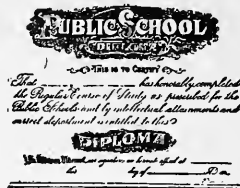 PUBLIC SCHOOL
DIPLOMA
THIS IS TO CERTIFY
That has honorably completed
the Regular Course of Study as prescribed for the
Public Schools and by intellectual attainments and
correct deportment is entitled to this
DIPLOMA
In Witness Whereof, our signatures are hereunto affixed at
this day of A.D.